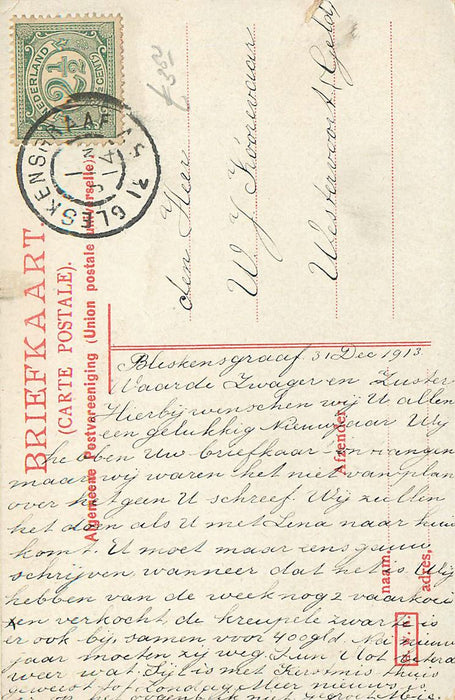 NEDERLAND
2½
CENT
BLESKENSGRAAF
BRIEFKAART
(CARTE POSTALE).
Algemeene Postvereeniging (Union postale universelle).
den Heer
W J Korevaar
Westervoort (Geld)
Afzender
naam.
adres,
Bleskensgraaf 31 Dec 1913
Waarde Zwager en Zuster
Hierbij wenschen wij U allen
een gelukkig Nieuwjaar Wij
hebben Uw briefkaart ontvangen
maar wij waren het niet van plan
over hetgeen U schreef. Wij zullen
het doen als U met Lena naar huis
komt. U moet maar eens gauw
schrijven, wanneer dat het is. Wij
hebben van de week nog 2 vaarkoei
en verkocht, de kreupele zwarte is
er ook bij, samen voor 400gld. Na nieuw
jaar moeten zij weg.
met Kermis thuis
geweest